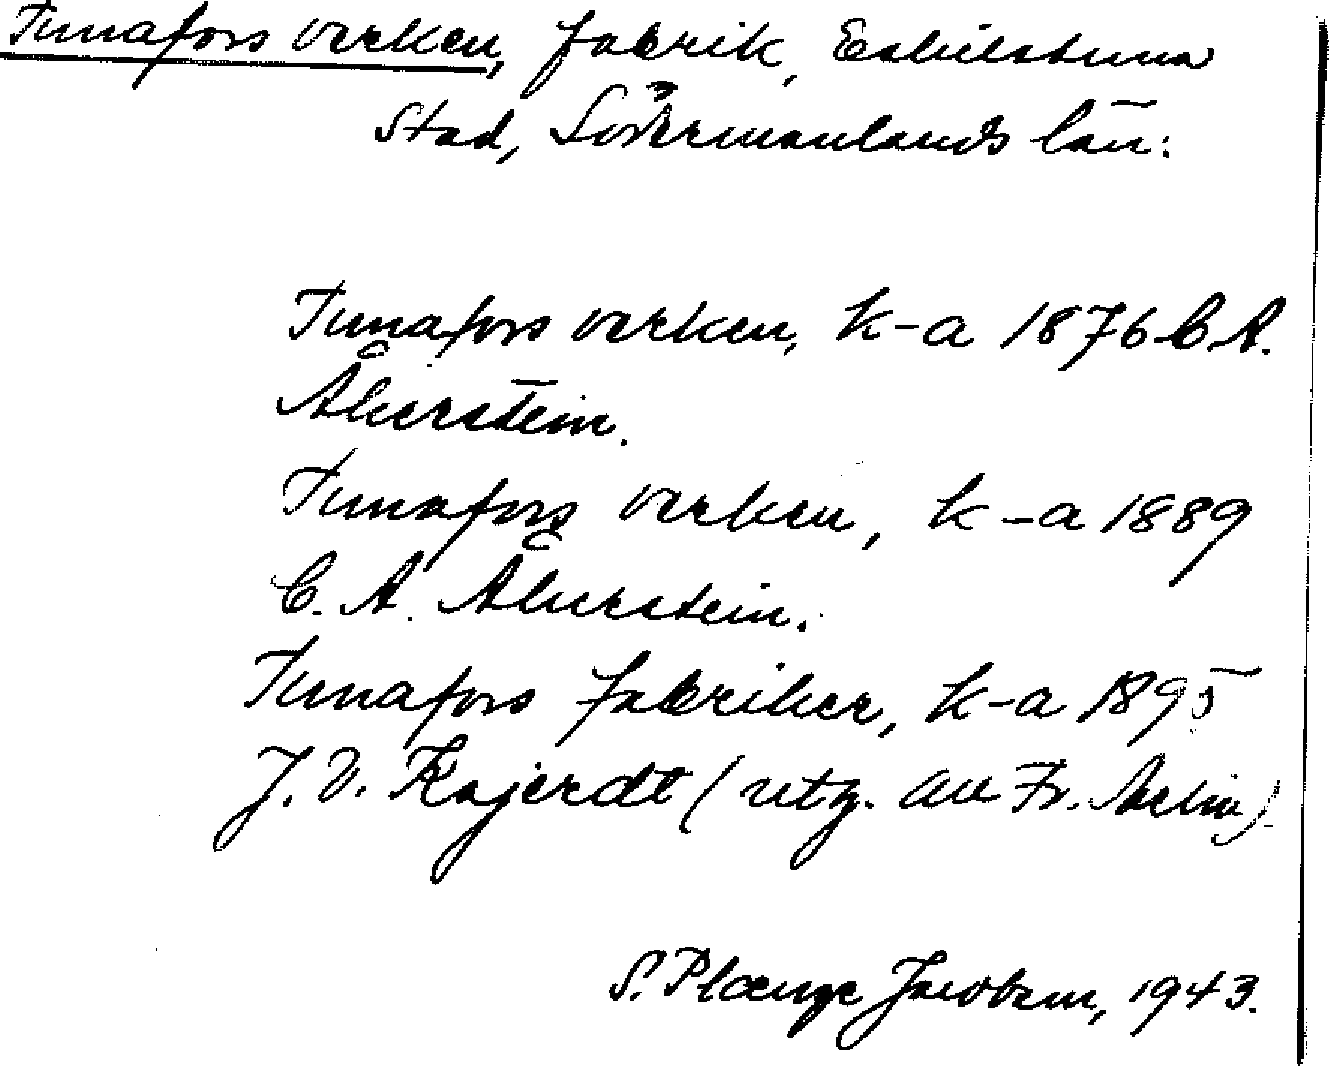 Tunafors verken, fabrik, Eskilstuna
Stad, Södermanlands län:
Tunafors verken, k-a 1876 C. A.
Åkerstein.
Tunafors verken, k-a 1889
C. A. Åkerstein.
Tunafors fabriker, k-a 1895
J. V. Kajerdt (utg. av Fr.
S. Plænge Jacobson, 1943.